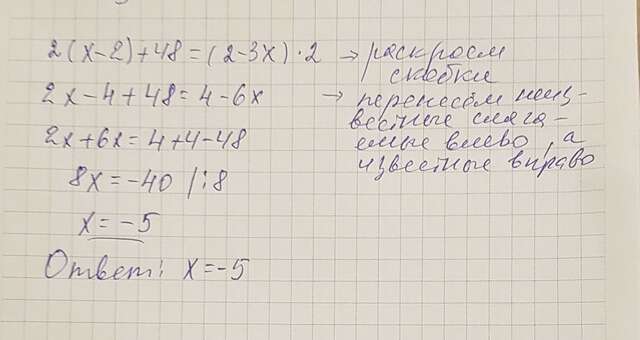 2(x-2)+48=(2-3x)·2 → раскроем
скобки
2x-4+48=4-6x → перенесём неиз-
вестные слага-
2x+6x=4+4-48 емые влево, а
известные вправо
8x=-40 /:8
x=-5
Ответ: x=-5